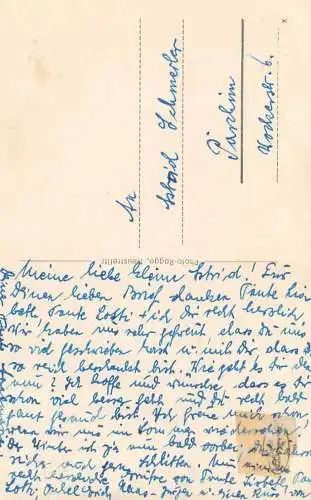 An
Astrid Schmerler
Parchim
Photo-Rogge, Neustrelitz
Meine liebe kleine Astrid! Für
Deinen lieben Brief danken Tante Lies
beth, Tante Lotti + ich dir recht herzlich
Wir haben uns sehr gefreut dass du uns
so viel geschrieben hast u. mit dir, dass du
so reich beschenkt bist. Wie geht es dir denn
nun? Ich hoffe und wünsche, dass es dir
schon viel besser geht und du recht bald
ganz gesund bist. Ich freue mich schon,
wenn wir uns im wiedersehen,
der Winter ist ja nun bald vorbei,
und Schlitten. Nun
recht herzliche Grüße von Tante Lisbeth, Tante
Lotti, Onkel